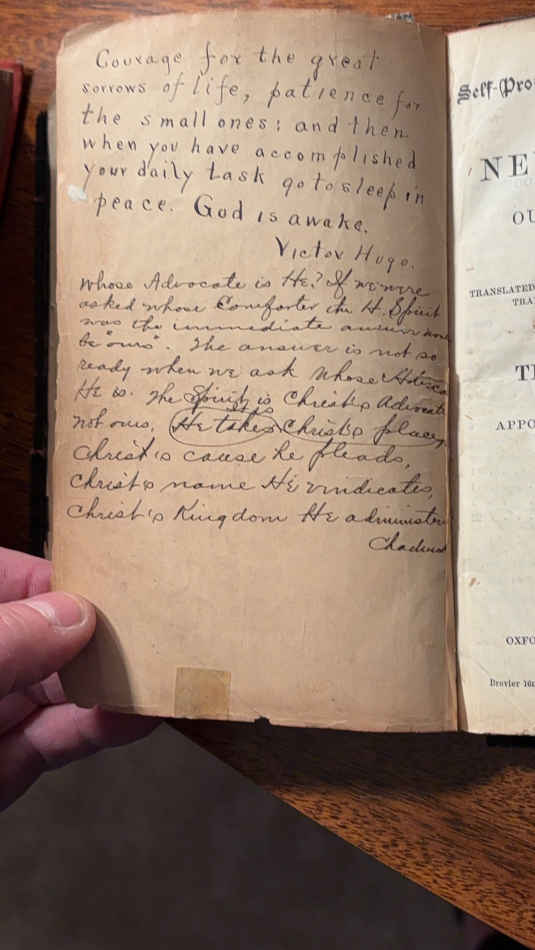 Courage for the great
sorrows of life, patience for
the small ones; and then
when you have accomplished
your daily task go to sleep in
peace. God is awake.
Victor Hugo.
Whose Advocate is He? If we were
asked whose Comforter the H. Spirit
was the immediate answer
be ours". The answer is not so
ready when we ask whose
He is. The Spirit is Christ's Advocate
not ours. He takes Christ's place,
Christ's cause he pleads,
Christ's name He vindicates,
Christ's Kingdom He administers
Self-Pro
NE
OU
TRANSLATED
TRA
T
APPO
OXFO
Brevier 16